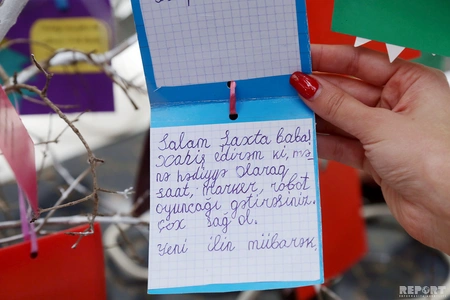 Salam Şaxta baba!
Xahiş edirəm ki, mə-
nə hədiyyə olaraq
saat, marker, robot
oyuncağı gətirəsiniz.
Çox sağ ol.
Yeni ilin mübarək.
REPORT